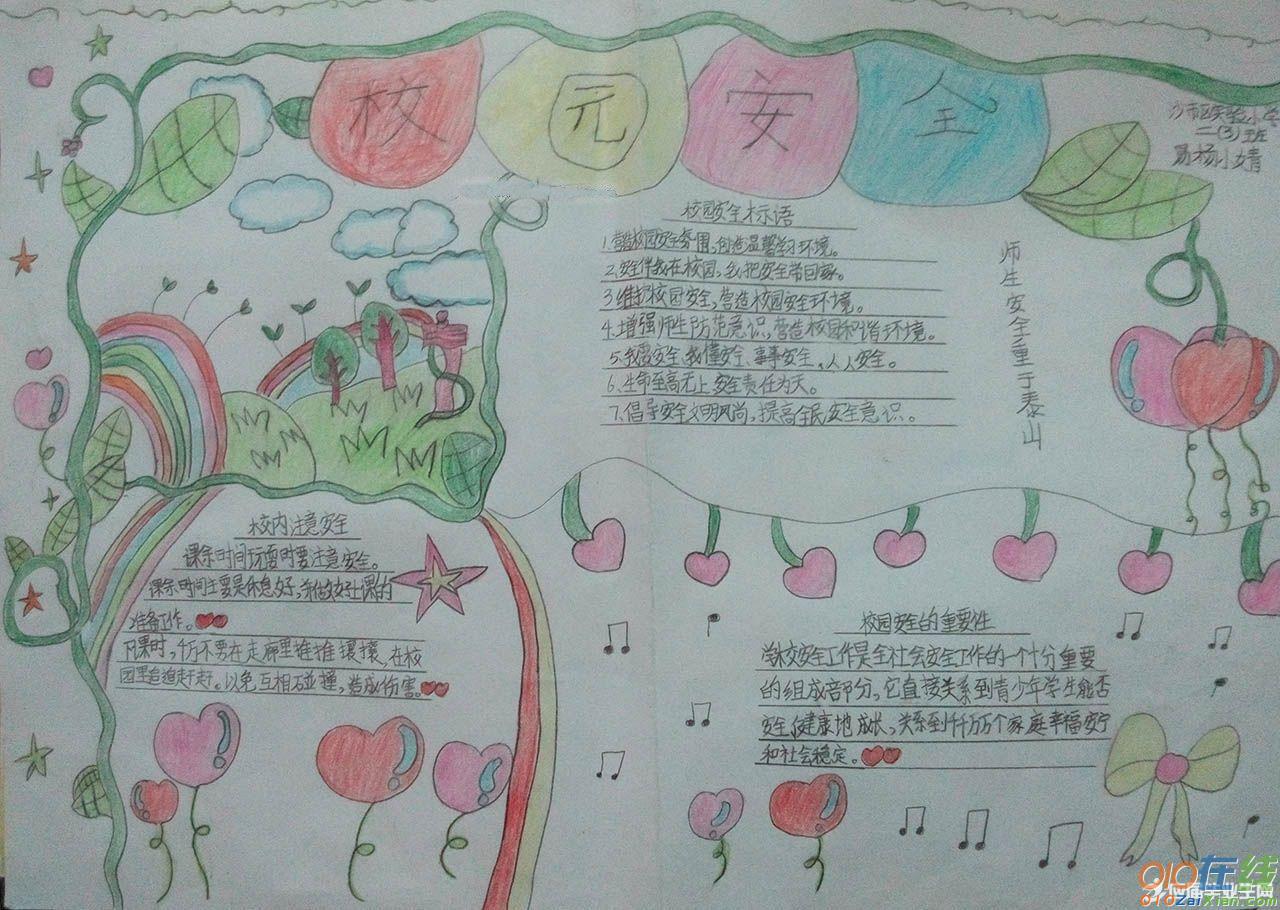 校园安全
沙市区实验小学
二(3)班
易杨小婧
校园安全标语
1.营造校园安全氛围,创造温馨学习环境。
2.安全伴我在校园,我把安全带回家。
3.维护校园安全,营造校园安全环境。
4.增强师生防范意识,营造校园和谐环境。
5.我要安全,我懂安全、事事安全、人人安全。
6.生命至高无上,安全责任为天。
7.倡导安全文明风尚,提高全民安全意识。
师生安全重于泰山
校内注意安全
课余时间玩耍时要注意安全。
课余时间主要是休息好,并做好上课的
准备工作。
下课时,千万不要在走廊里推推攘攘,在校
园里追追赶赶。以免互相碰撞,造成伤害。
校园安全的重要性
学校安全工作是全社会安全工作的一个十分重要
的组成部分,它直接关系到青少年学生能否
安全、健康地成长,关系到千千万万个家庭幸福安宁
和社会稳定。
010在线
010ZaiXian.com